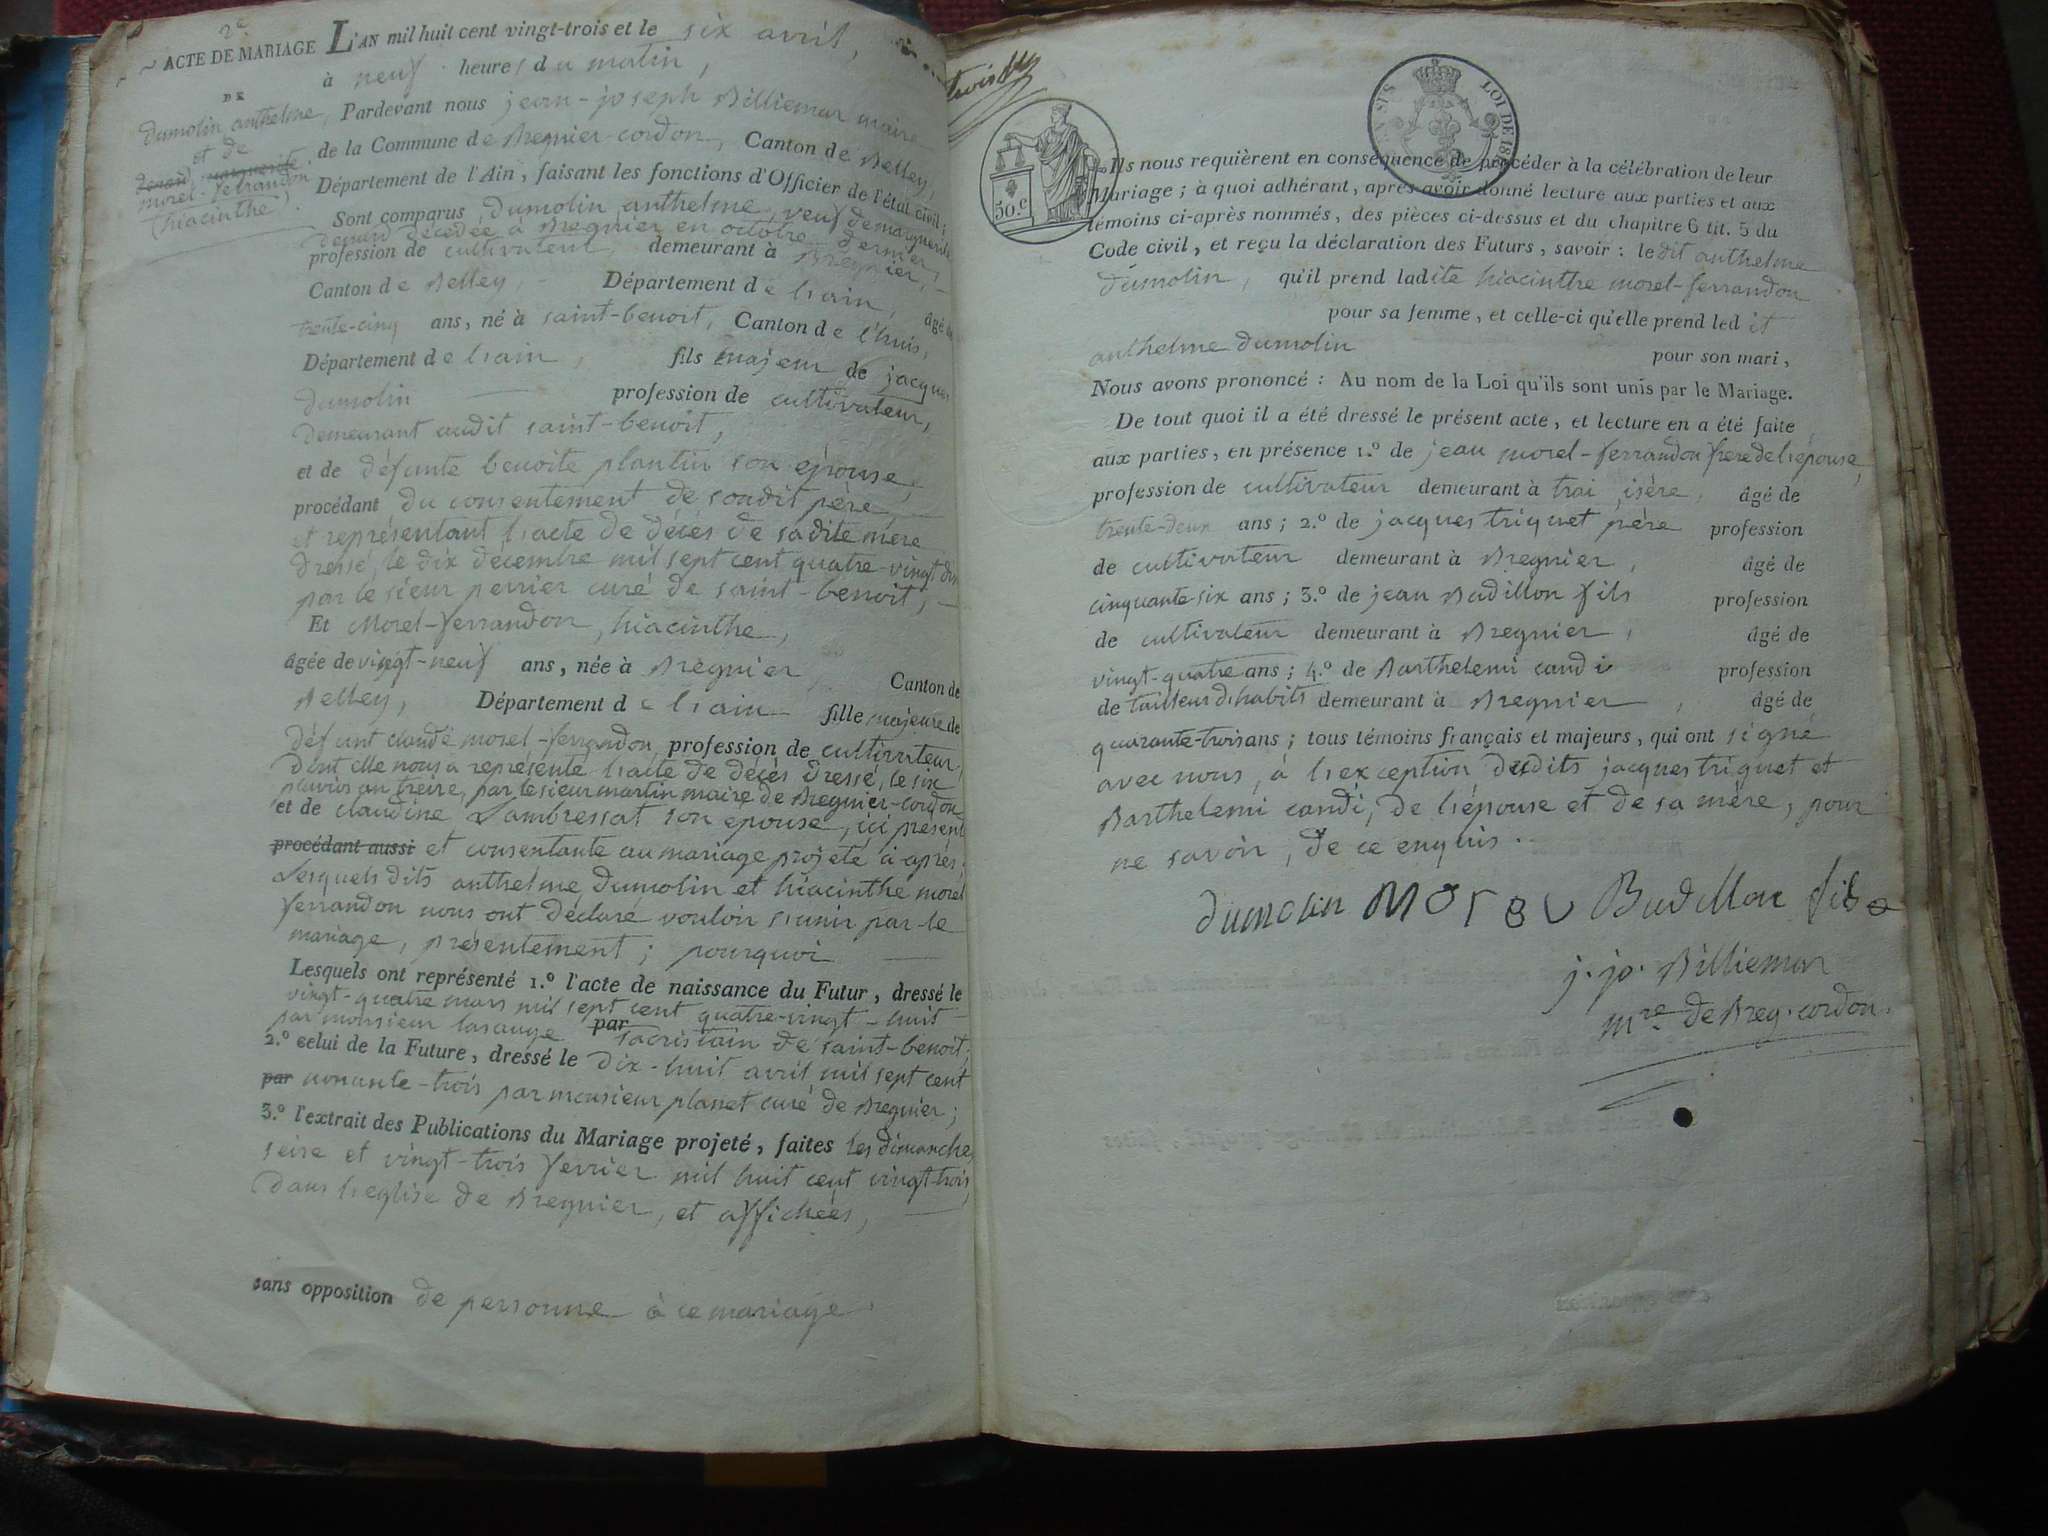 2e
ACTE DE MARIAGE
DE
dumolin anthelme,
et de
morel-ferrandon
hiacinthe.
L'AN mil huit cent vingt-trois et le six avril,
à neuf heures du matin,
Pardevant nous jean-joseph Billiemar maire
de la Commune de Bregnier-cordon, Canton de Belley,
Département de l'Ain, faisant les fonctions d'Officier de l'état civil;
Sont comparus, dumolin anthelme, veuf de marguerite
décédée à Bregnier en octobre dernier,
profession de cultivateur, demeurant à Bregnier,
Canton de Belley, Département de l'ain, âgé de
trente-cinq ans, né à saint-benoit, Canton de l'huis,
Département de l'ain, fils majeur de jacques
dumolin profession de cultivateur,
demeurant audit saint-benoit,
et de défunte benoite plantin son épouse,
procédant du consentement de soudit père,
et représentant l'acte de décès de sadite mère
dressé, le dix décembre mil sept cent quatre-vingt
par le sieur perrier curé de saint-benoit,
Et Morel-ferrandon, hiacinthe,
âgée de vingt-neuf ans, née à Bregnier Canton de
Belley, Département de l'ain fille majeure de
défunt claude morel-ferrandon profession de cultivateur,
dont elle nous a représenté l'acte de décès dressé, le six
pluviôs an treize, par le sieur martin maire de Bregnier-cordon
et de claudine Lambressat son épouse, ici présente
procédant aussi et consentante au mariage projeté ci-après;
Lesquels dits anthelme dumolin et hiacinthe morel
ferrandon nous ont déclaré vouloir s'unir par le
mariage, présentement; pourquoi
Lesquels ont représenté 1.º l'acte de naissance du Futur, dressé le
vingt-quatre mars mil sept cent quatre-vingt-huit
par monsieur par sacristain de saint-benoit;
2.º celui de la Future, dressé le dix-huit avril mil sept cent
par nonante-trois par monsieur planet curé de Bregnier;
3.º l'extrait des Publications du Mariage projeté, faites les dimanches
seize et vingt-trois fevrier mil huit cent vingt-trois,
dans l'eglise de Bregnier, et affichées,
sans opposition de personne à ce mariage.
50.c
LOI DE 18
Ils nous requièrent en conséquence de procéder à la célébration de leur
Mariage; à quoi adhérant, après avoir donné lecture aux parties et aux
témoins ci-après nommés, des pièces ci-dessus et du chapitre 6 tit. 5 du
Code civil, et reçu la déclaration des Futurs, savoir: ledit anthelme
dumolin, qu'il prend ladite hiacinthe morel-ferrandon
pour sa femme, et celle-ci qu'elle prend ledit
anthelme dumolin pour son mari,
Nous avons prononcé: Au nom de la Loi qu'ils sont unis par le Mariage.
De tout quoi il a été dressé le présent acte, et lecture en a été faite
aux parties, en présence 1.º de jean morel-ferrandon frere de l'épouse,
profession de cultivateur demeurant à trai, isère, âgé de
trente-deux ans; 2.º de jacques triquet père profession
de cultivateur demeurant à Bregnier, âgé de
cinquante-six ans; 3.º de jean Badillon fils profession
de cultivateur demeurant à Bregnier, âgé de
vingt-quatre ans; 4.º de Barthelemi candi profession
de tailleur d'habits demeurant à Bregnier, âgé de
quarante-trois ans; tous témoins français et majeurs, qui ont signé
avec nous, à l'exception desdits jacques triquet et
Barthelemi candi, de l'épouse et de sa mère, pour
ne savoir, de ce enquis.
dumolin Morel Budillon fils
j. jo. Billiemar
mre de Breg.cordon.